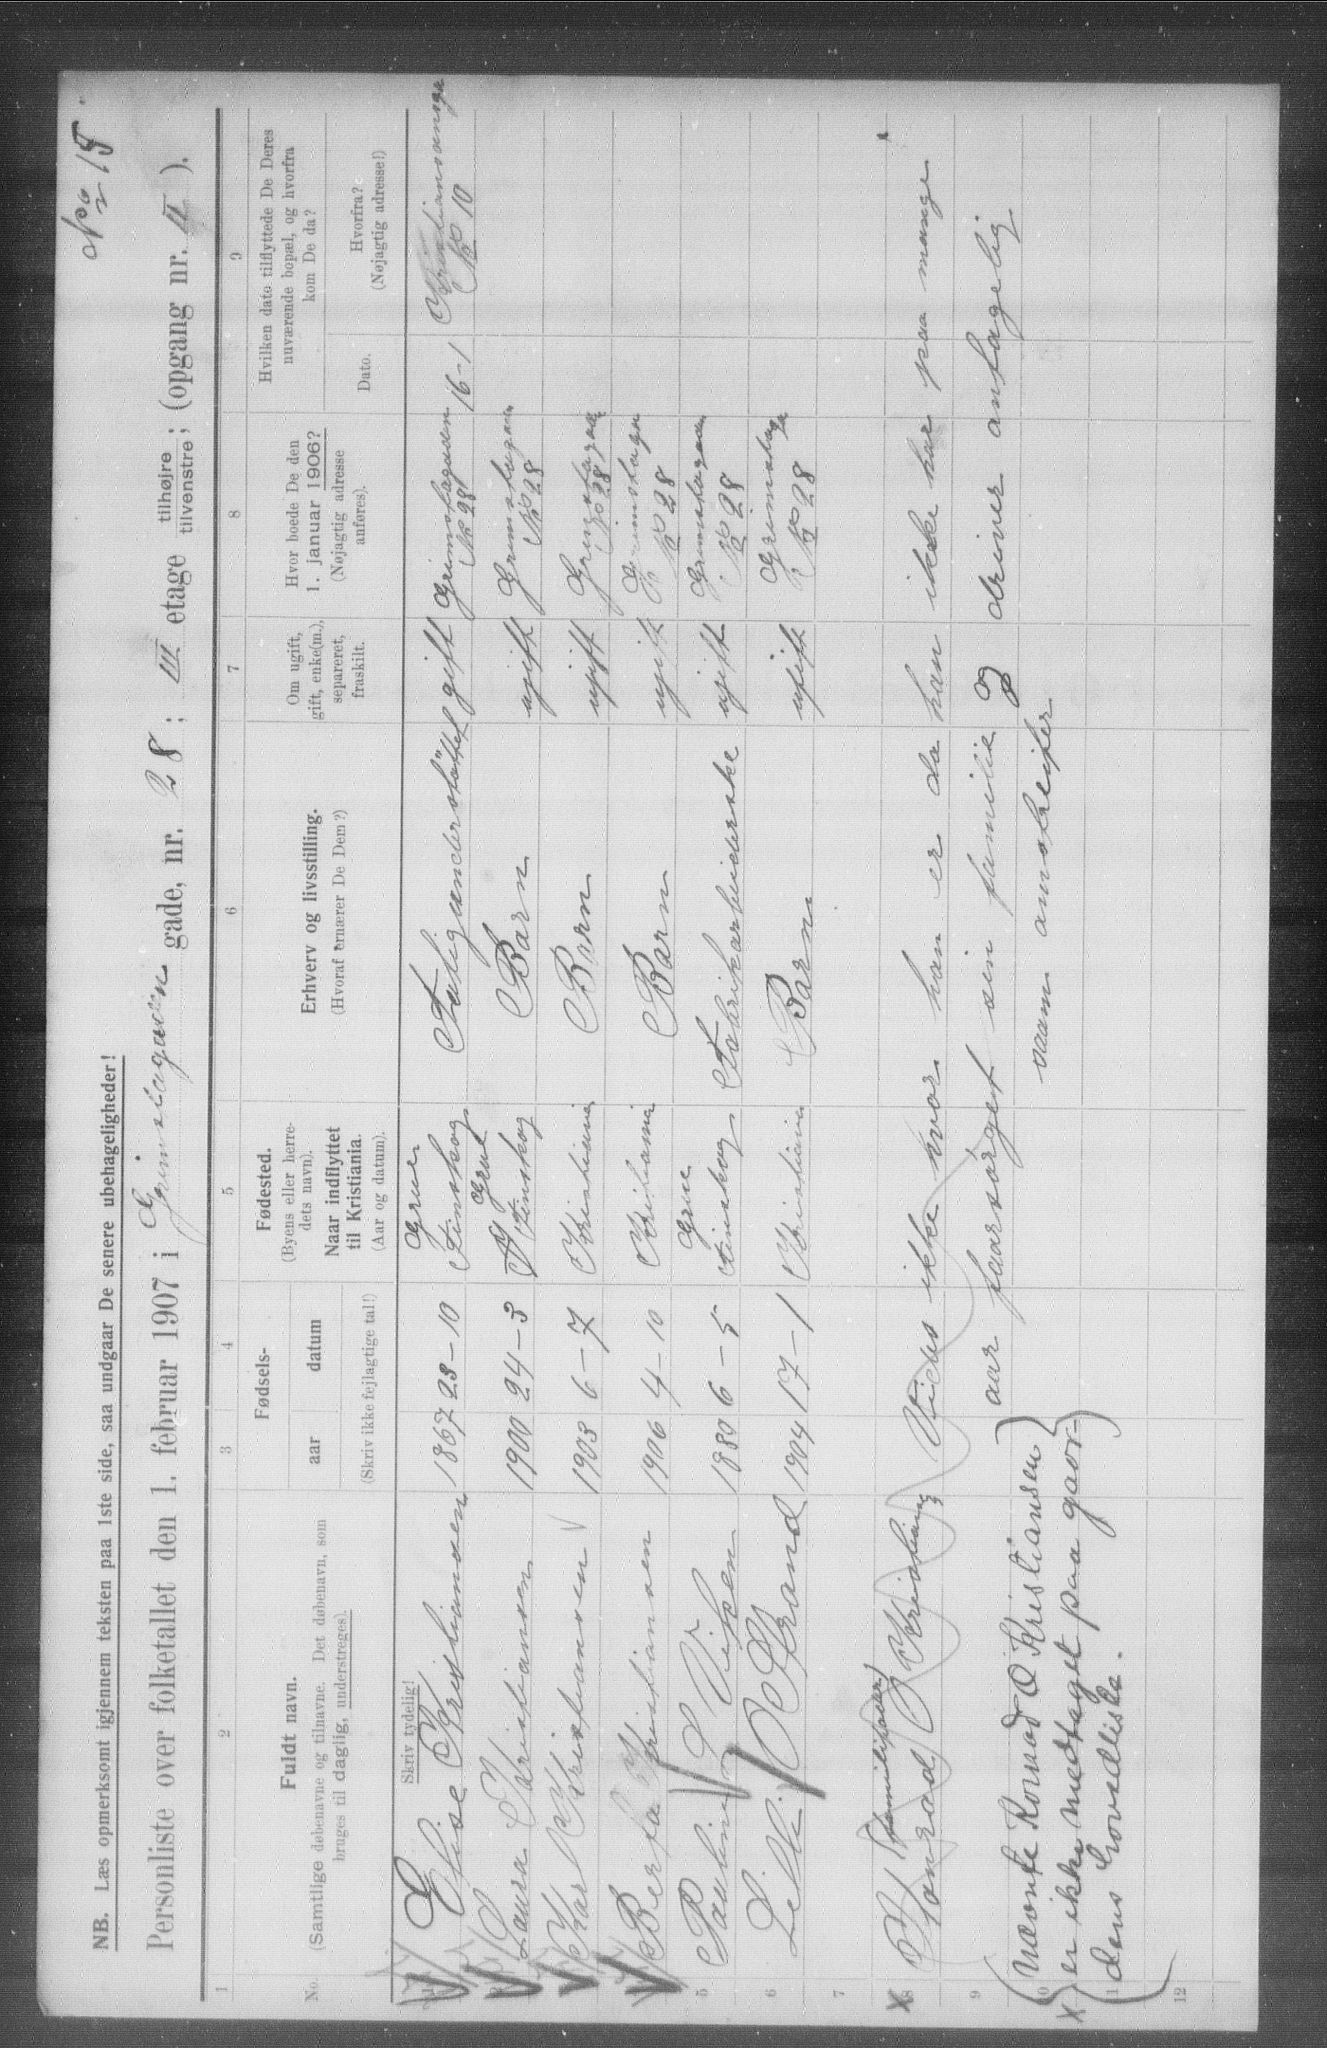 No 15
NB. Læs opmerksomt igjennem teksten paa 1ste side, saa undgaar De senere ubehageligheder!
Personliste over folketallet den 1. februar 1907 i Grimstagaden gade, nr. 28; III etage tilhøjre tilvenstre; (opgang nr. II).
1 2 3 4 5 6 7 8 9
No.
Fuldt navn.
(Samtlige døbenavne og tilnavne. Det døbenavn, som
bruges til daglig, understreges).
Fødsels-
aar datum
(Skriv ikke fejlagtige tal!)
Fødested.
(Byens eller herre-
dets navn).
Naar indflyttet
til Kristiania.
(Aar og datum).
Erhverv og livsstilling.
(Hvoraf ernærer De Dem?)
Om ugift,
gift, enke(m.),
separeret,
fraskilt.
Hvor boede De den
1. januar 1906?
(Nøjagtig adresse
anføres).
Hvilken dato tilflyttede De Deres
nuværende bopæl, og hvorfra
kom De da?
Dato.
Hvorfra?
(Nøjagtig adresse!)
Skriv tydelig!
Elise Kristiansen 1867 28-10 Grue Finskog Fatigunderstöttet gift Grimstagaden No 28 16-1 No 10
Laura Kristiansen 1900 24-3 Grue Finskog Barn ugift Grimstagaden No 28
Karl Kristiansen 1903 6-7 Kristiania Barn ugift Grimstagaden No 28
Berta Kristiansen 1906 4-10 Kristiania Barn ugift Grimstagaden No 28
5 Pauline 1880 6-5 Grue Finskog Fabrikarbeiderske ugift Grimstagaden No 28
6 Lilli Strand 1904 17-1 Kristiania Barn ugift Grimstagaden No 28
7
x 8 Konrad (familifader) Kristiansen Vides ikke hvor han er da han ikke har paa mange
9 aar faarsörget sin familie og driver antagelig
10 som
x { Nævnte Konrad O Kristiansen }
er ikke medtaget paa gaar-
11 dens hovedliste.
12